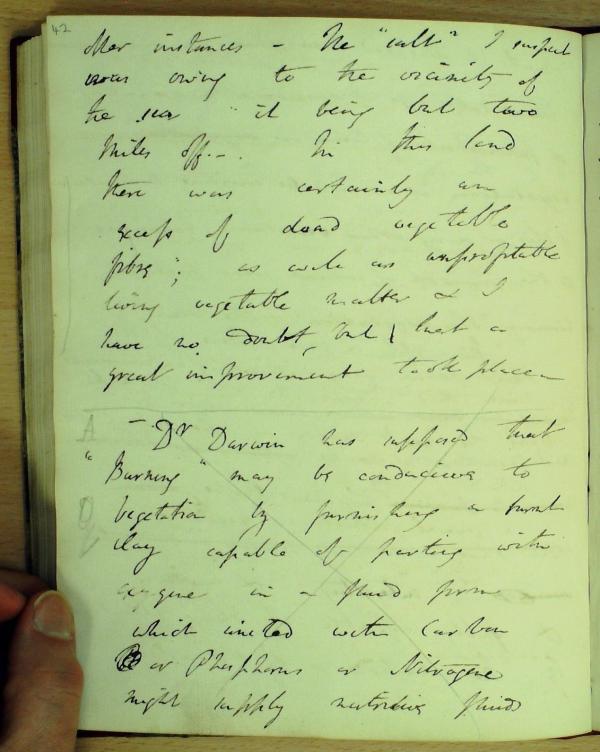 42
other instances - The "salt" I suspect
was owing to the vicinity of
the sea it being but two
miles off. - In this land
there was certainly an
excess of dead vegetable
fibre; as well as unprofitable
living vegetable matter & I
have no doubt, but that a
great improvement took place -
- Dr Darwin has supposed that
"Burning" may be conducive to
vegetation by furnishing a burnt
clay capable of parting with
oxygene in a fluid form
which united with Carbon
or Phosphorus or Nitrogene
might supply nutritive fluid